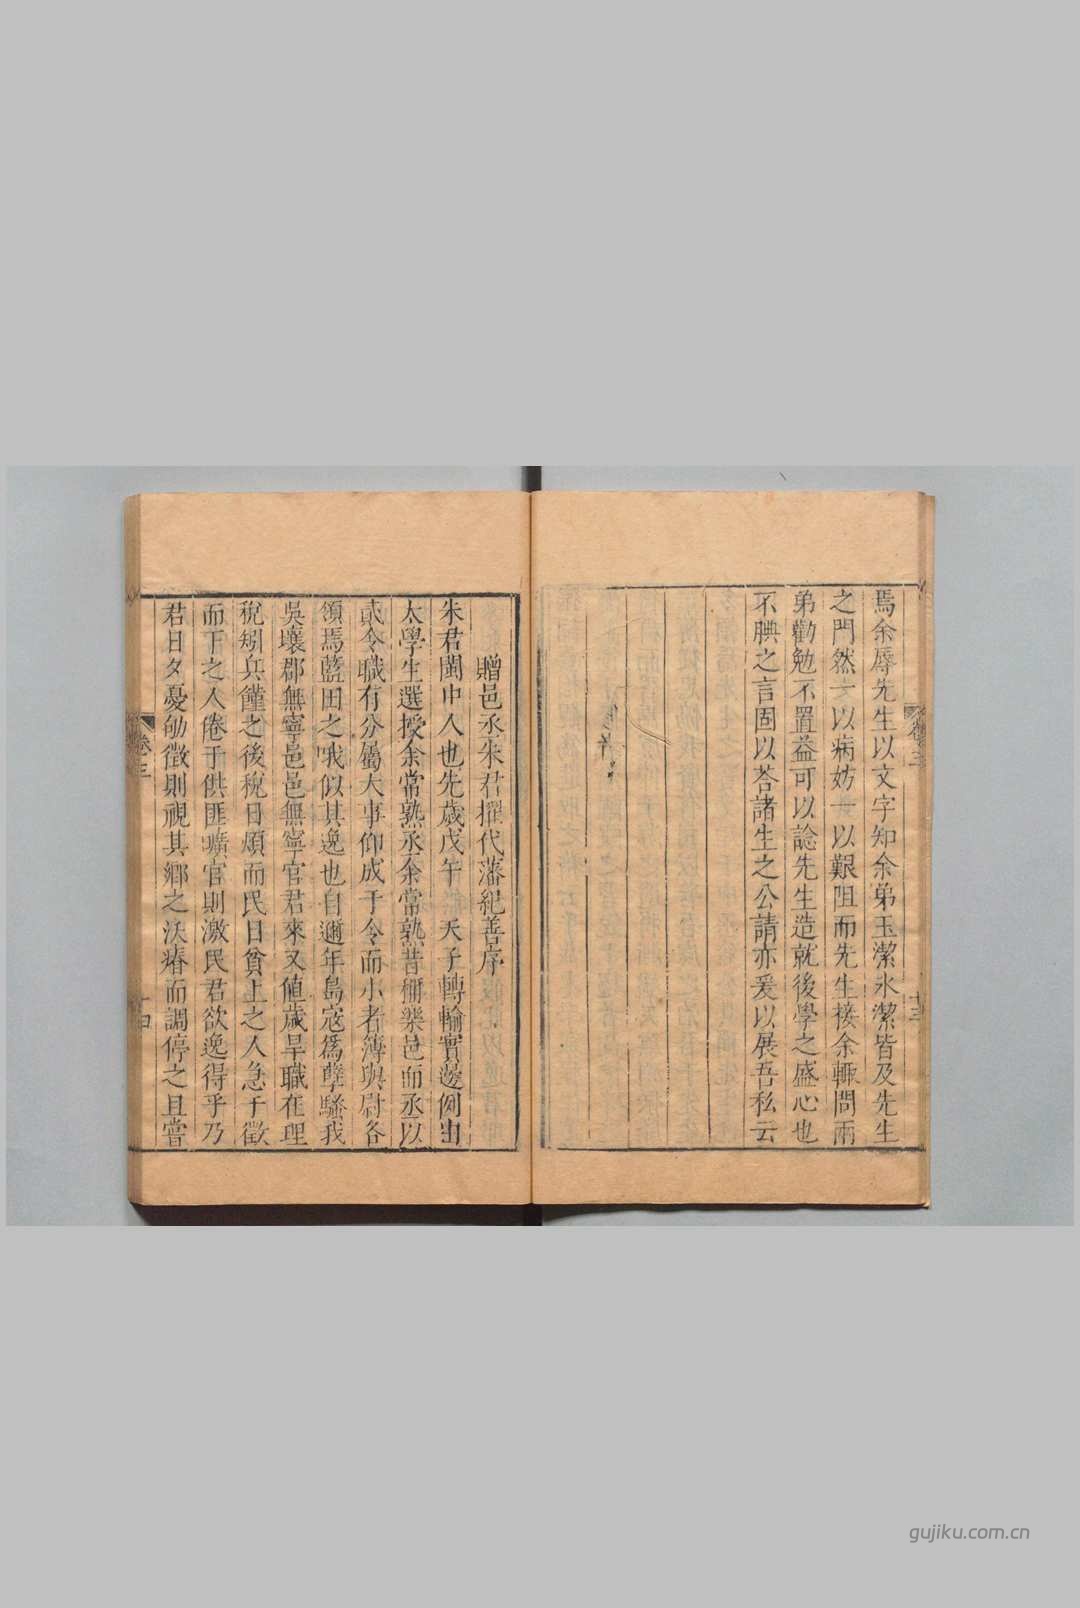 焉余辱先生以文字知余弟玉潔氷潔皆及先生
之門然一以病妨一以艱阻而先生接余輙問兩
弟勸勉不置益可以諗先生造就後學之盛心也
不腆之言固以荅諸生之公請亦爰以展吾私云
卷三
十三
贈邑丞朱君擢代藩紀善序
朱君閩中人也先歲戊午 天子轉輸實邊例由
太學生選授余常熟丞余常熟昔稱樂邑而丞以
貳令職有分屬大事仰成于令而小者簿與尉各
領焉藍田之哦似其逸也自邇年島寇爲孽騷我
吳壤郡無寧邑邑無寧官君來又値歲旱職在理
稅矧兵饉之後稅日煩而民日貧上之人急于徵
而下之人倦于供匪曠官則激民君欲逸得乎乃
君日夕憂劬徵則視其鄉之沃瘠而調停之且嘗
卷三
十四
gujiku.com.cn